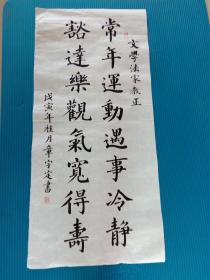 文學法家教正
常年運動遇事冷靜
豁達樂觀氣寬得壽
戊寅年桂月章守定書